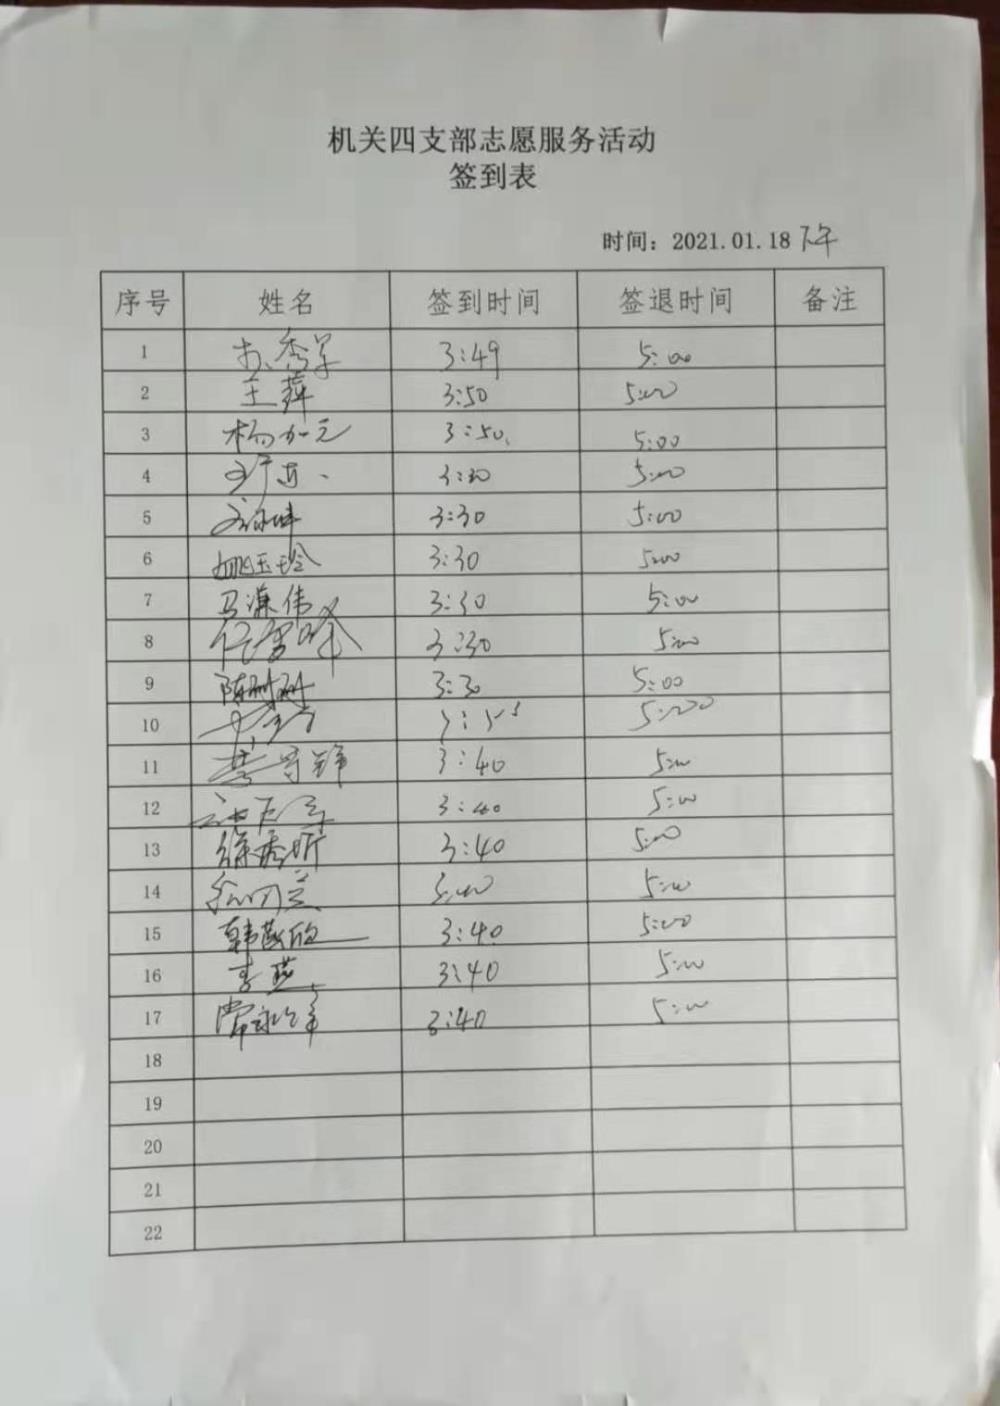 机关四支部志愿服务活动
签到表
时间：2021.01.18 下午
序号 姓名 签到时间 签退时间 备注
1 3:49 5:00
2 王萍 3:50 5:00
3 杨加元 3:50. 5:00
4 3:30 5:00
5 3:30 5:00
6 姚玉玲 3:30 5:00
7 马谦伟 3:30 5:00
8 3:30 5:00
9 陈树树 3:30 5:00
10
11 3:40 5:00
12 3:40 5:00
13 徐秀娇 3:40 5:00
14 3:40 5:00
15 3:40 5:00
16 李燕 3:40 5:00
17 3:40 5:00
18
19
20
21
22